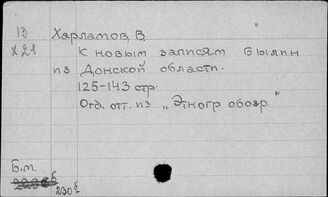 13
Х21
Харламов, В
К новым записям Былин
из Донской области.
125-143 стр.
Отд. отт. из „Этногр обозр."
Б.м.
230 б